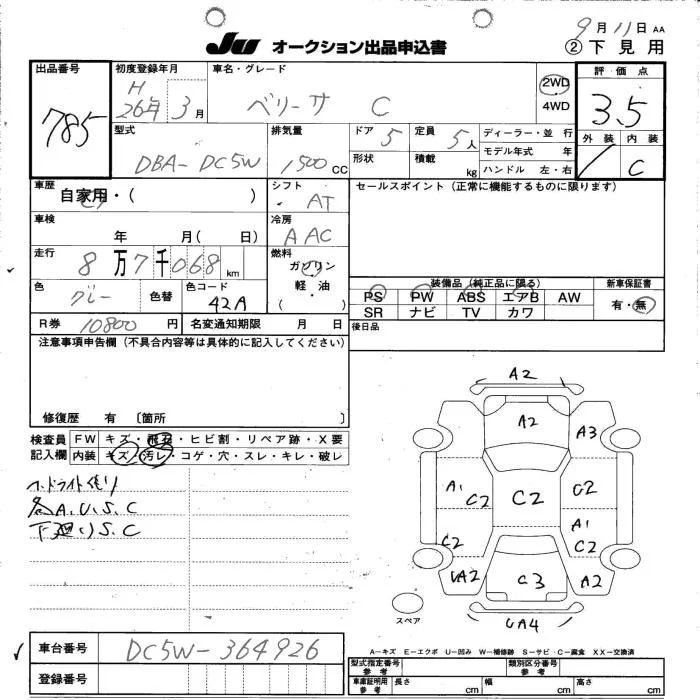 9月11日 AA
JU オークション出品申込書
② 下見用
出品番号 初度登録年月 車名・グレード 評価点
785
H 26年 3月
ベリーサ C
2WD
4WD
3.5
外装 内装
C
型式 排気量 ドア 定員 ディーラー・並行
DBA-DC5W 1500CC 5 5人
モデル年式 年
形状 積載 kg ハンドル 左・右
車歴 シフト セールスポイント(正常に機能するものに限ります)
自家用・( ) AT
車検 冷房
年 月( 日) AAC
走行 燃料
8万7千068km ガソリン
軽油
・
( )
色 色替 色コード
グレー 42A
装備品(純正品に限る) 新車保証書
PS PW ABS エアB AW 有・無
SR ナビ TV カワ
R券 10800円 名変通知期限 月 日 後日品
注意事項申告欄(不具合内容等は具体的に記入してください)
修復歴 有 〔箇所 〕
検査員 FW キズ・飛石・ヒビ割・リペア跡・X要
記入欄 内装 キズ・汚レ・コゲ・穴・スレ・キレ・破レ
各A.U.S.C
下廻りS.C
A2
A2 A3
A1 C2 C2 C2
A1 C2
C2
UA2 C3 A2
スペア
UA4
車台番号 DC5W-364926
登録番号
A-キズ E-エクボ U-凹み W-補修跡 S-サビ C-腐食 XX-交換済
型式指定番号 参考 類別区分番号 参考
車庫証明用 参考 長さ cm 幅 cm 高さ cm